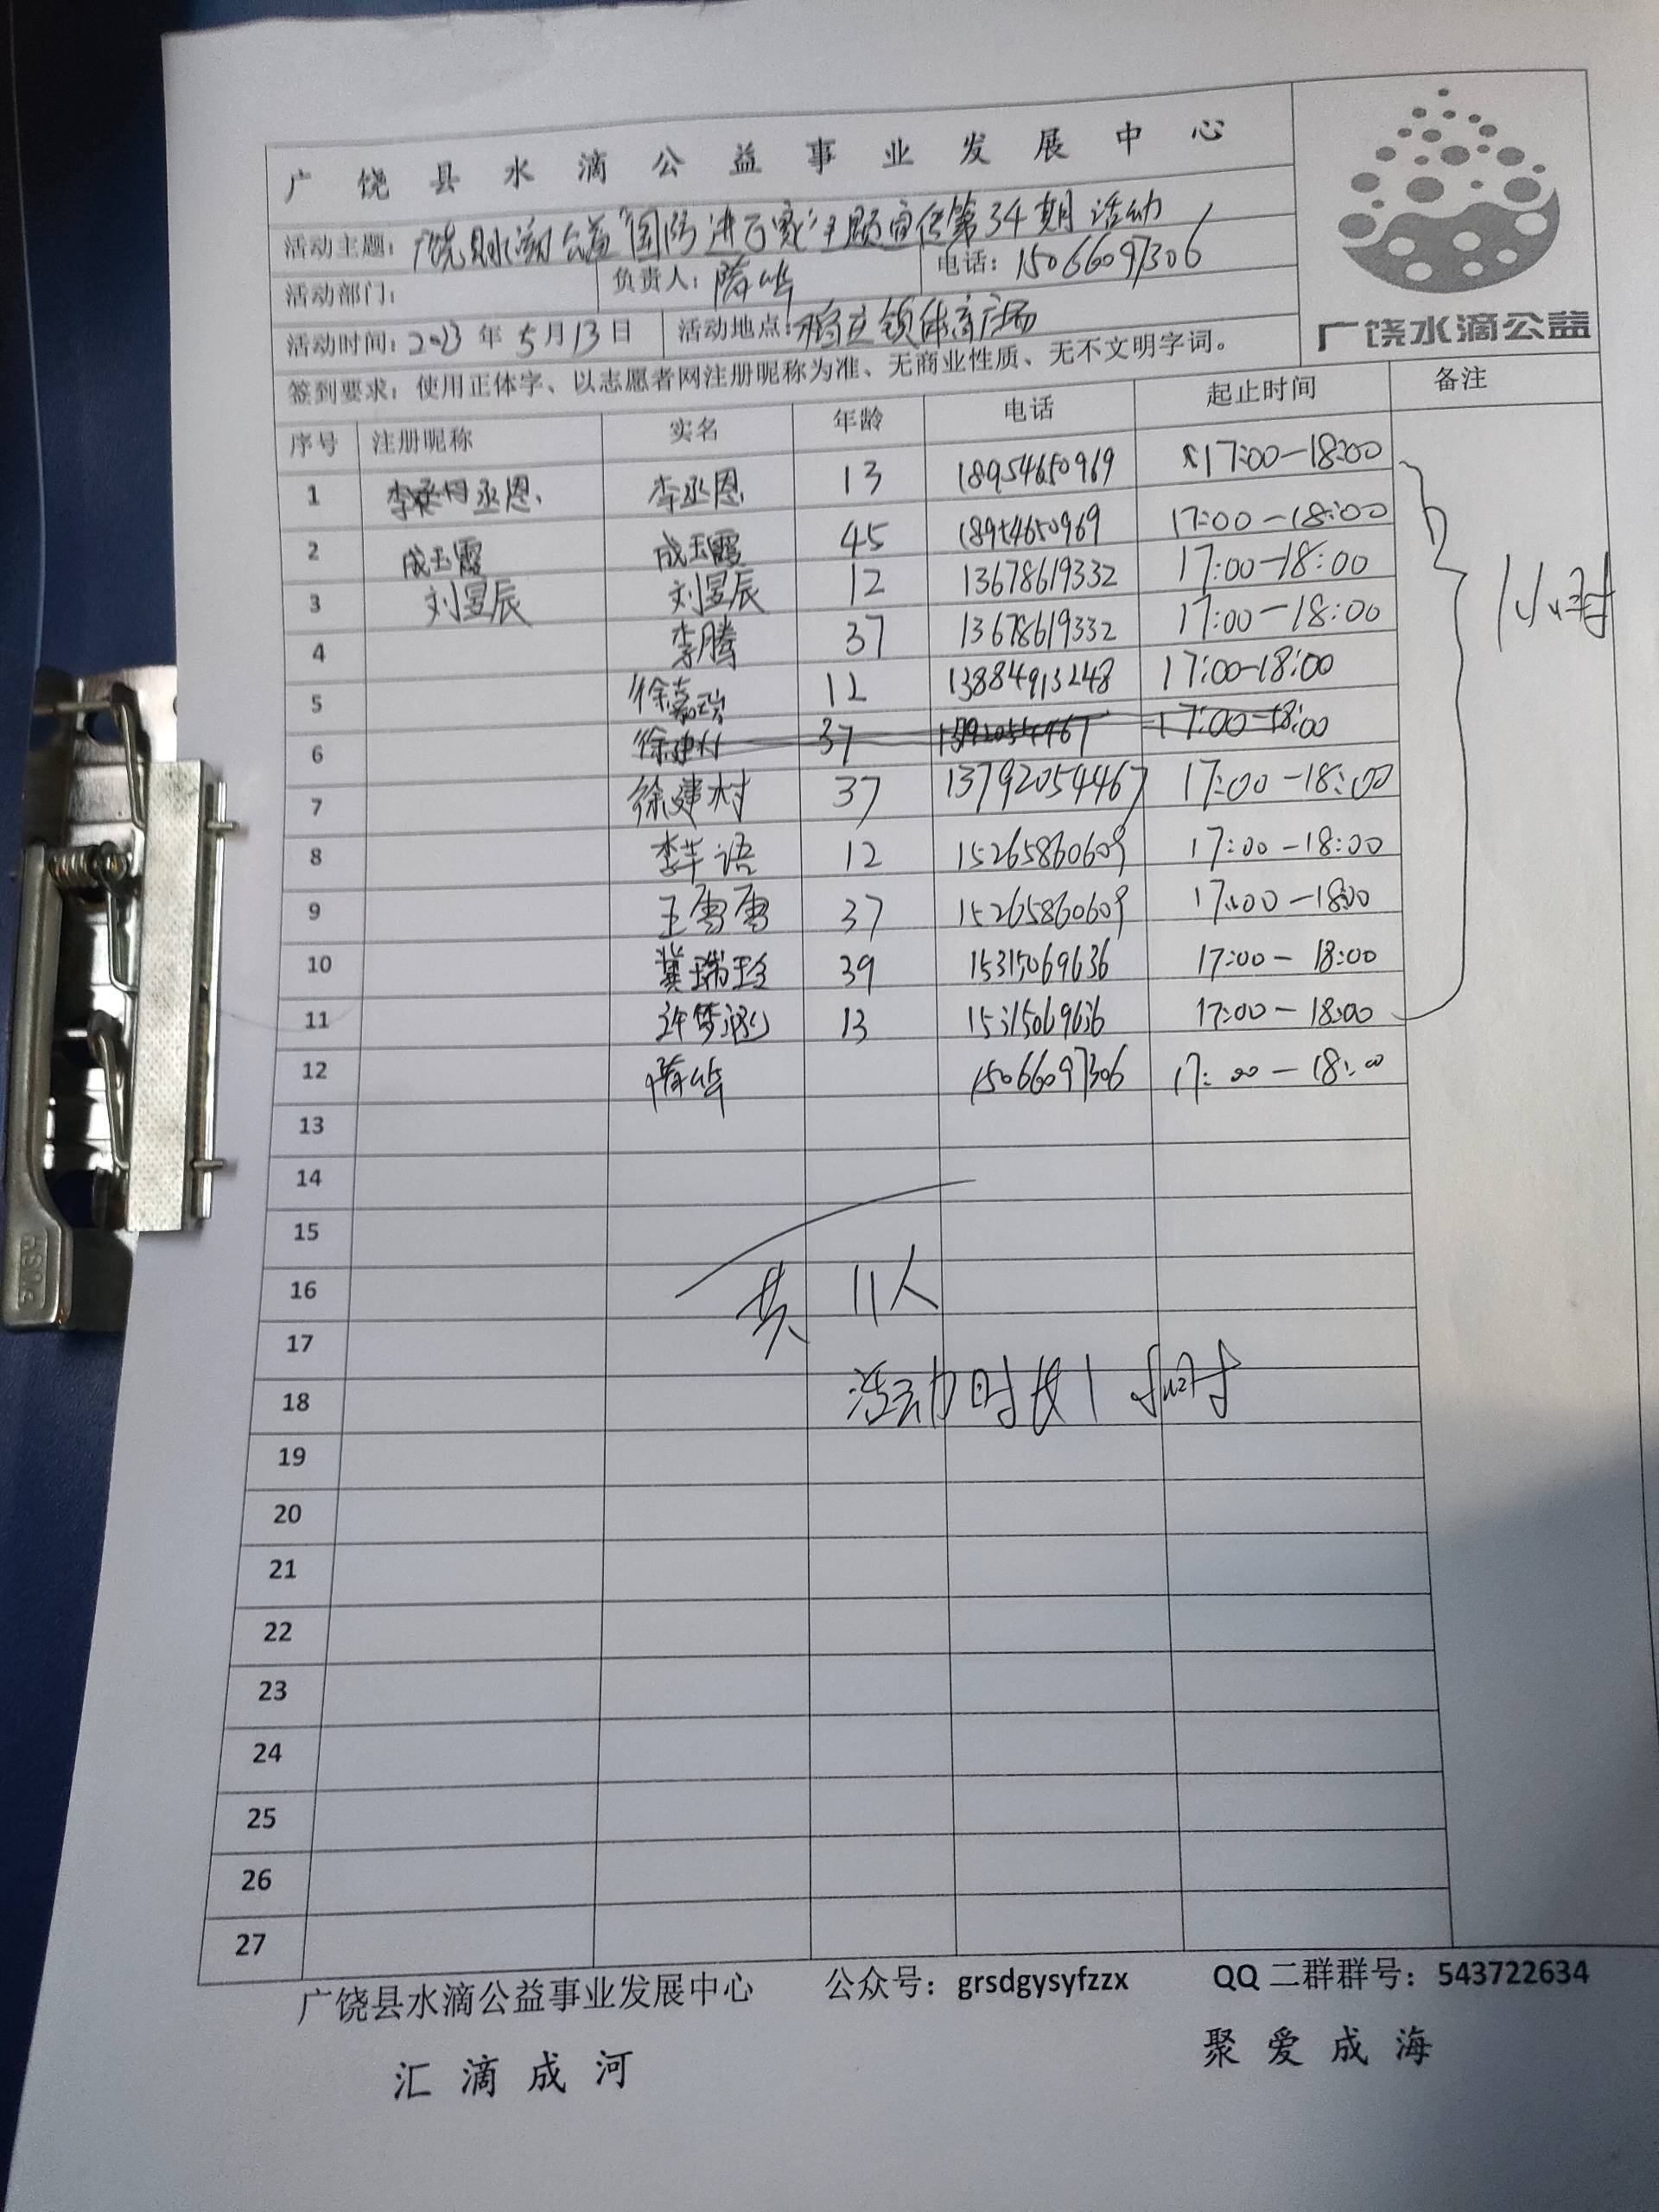 广饶县水滴公益事业发展中心
活动主题：广饶县水滴公益"国防进万家"主题宣传第34期活动
活动部门： 负责人：隋华 电话：15066097306
活动时间：2023年5月13日 活动地点：稻庄镇体育广场
签到要求：使用正体字、以志愿者网注册昵称为准、无商业性质、无不文明字词。
广饶水滴公益
序号 注册昵称 实名 年龄 电话 起止时间 备注
1 李丞恩 李丞恩 13 18954650969 17:00-18:00
2 成玉霞 成玉霞 45 18954650969 17:00-18:00
3 刘昱辰 刘昱辰 12 13678619332 17:00-18:00
4 李腾 37 13678619332 17:00-18:00
5 徐嘉瑞 12 13884913248 17:00-18:00
6 37 17:00-18:00
7 徐建村 37 13792054467 17:00-18:00
8 李芊语 12 15265860609 17:00-18:00
9 王雪雪 37 15265860609 17:00-18:00
10 冀瑞玲 39 15315069636 17:00-18:00
11 许梦 13 15315069636 17:00-18:00
12 隋华 15066097306 17:00-18:00
1小时
13
14
15
16 共11人
17
18 活动时长1小时
19
20
21
22
23
24
25
26
27
广饶县水滴公益事业发展中心 公众号：grsdgysyfzzx QQ二群群号：543722634
汇滴成河 聚爱成海
PUSH